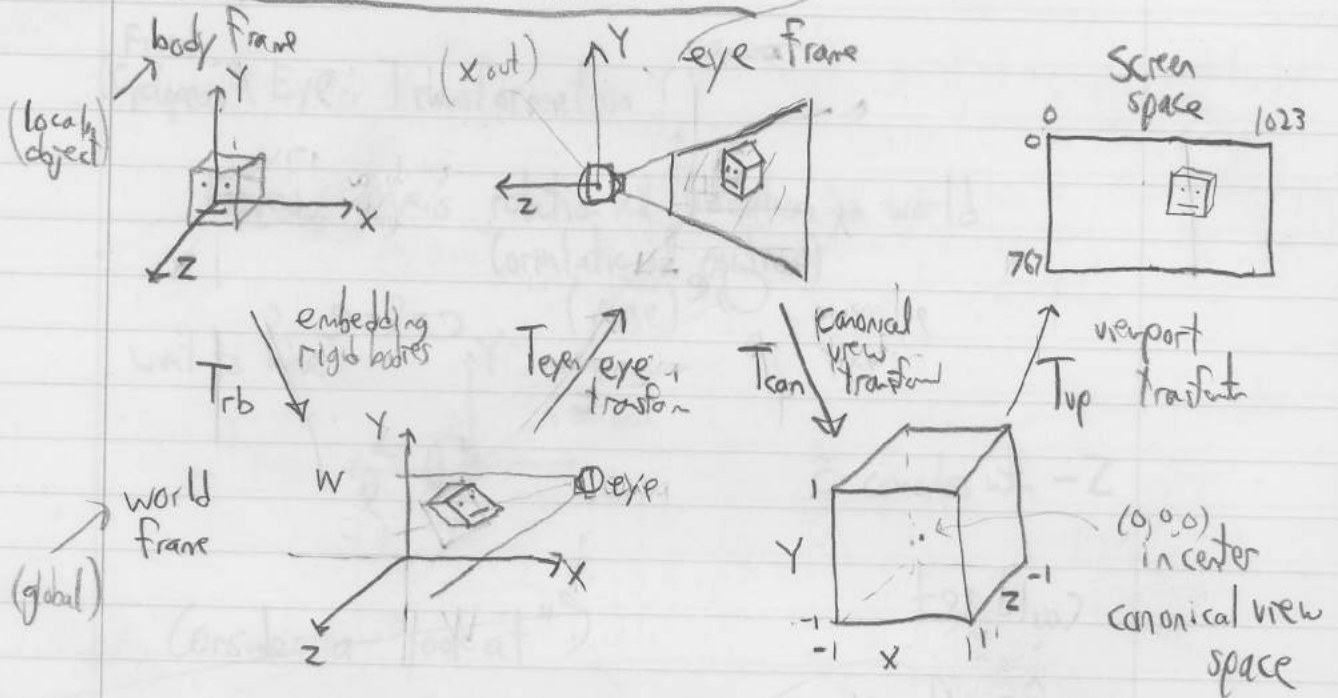 body frame
Y
X
Z
(local,
object)
(X out)
Y
eye frame
Z
Screen
space
0
0
1023
767
T_rb
embedding
rigid bodies
T_eye
eye
T_can
canonical
view
T_vp
viewport
world
frame
(global)
W
Y
X
Z
eye
1
Y
-1
-1
X
1
Z
-1
(0,0,0)
in center
canonical view
space